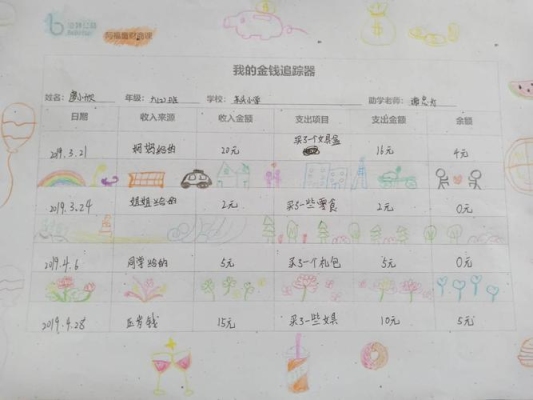 我的金钱追踪器
姓名: 年级: 学校: 助学老师:
日期 收入来源 收入金额 支出项目 支出金额 余额
2019.3.21 妈妈给的 20元 买了个文具盒 16元 4元
2019.3.24 姐姐给的 2元 买了一些零食 2元 0元
2019.4.6 同学给的 5元 买了一个礼包 5元 0元
2019.4.28 压岁钱 15元 买了一些文具 10元 5元